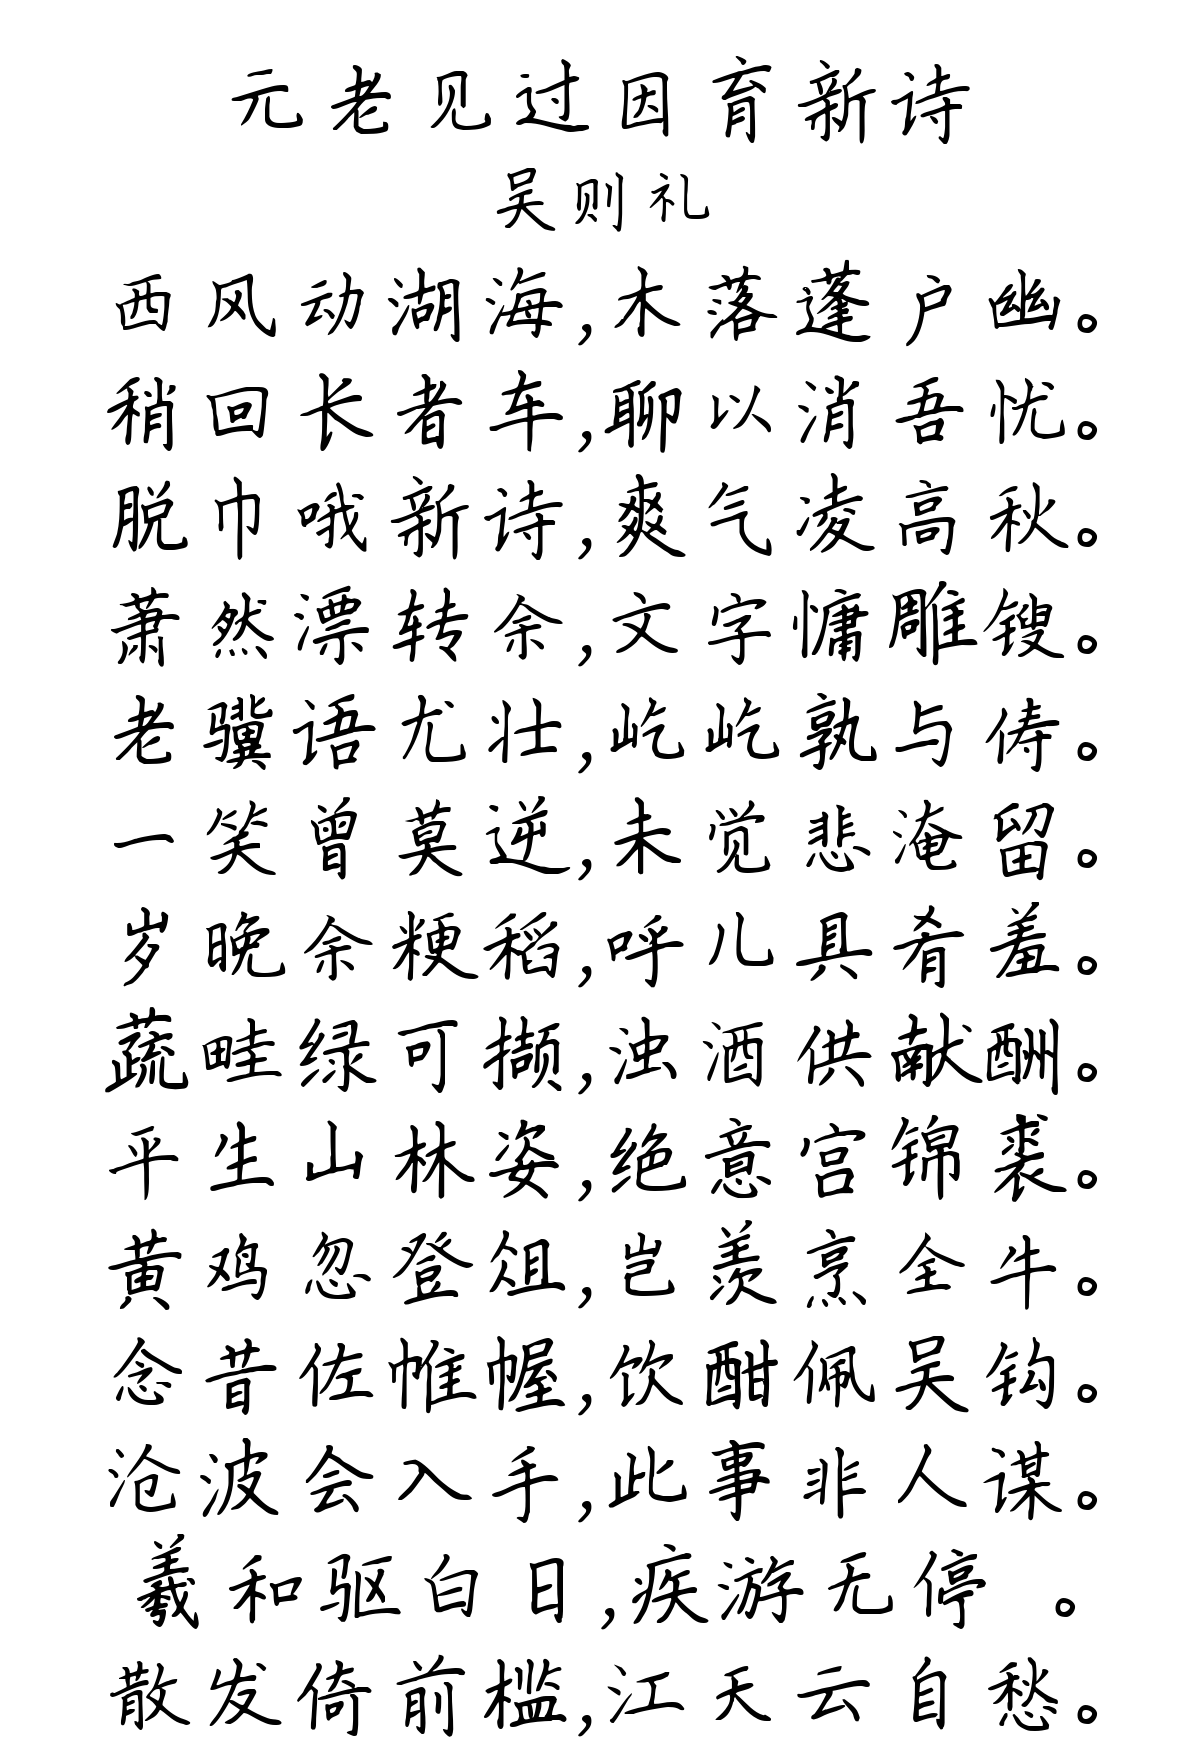 元老见过因育新诗
吴则礼
西风动湖海,木落蓬户幽。
稍回长者车,聊以消吾忧。
脱巾哦新诗,爽气凌高秋。
萧然漂转余,文字慵雕锼。
老骥语尤壮,屹屹孰与俦。
一笑曾莫逆,未觉悲淹留。
岁晚余粳稻,呼儿具肴羞。
蔬畦绿可撷,浊酒供献酬。
平生山林姿,绝意宫锦裘。
黄鸡忽登俎,岂羡烹全牛。
念昔佐帷幄,饮酣佩吴钩。
沧波会入手,此事非人谋。
羲和驱白日,疾游无停 。
散发倚前槛,江天云自愁。